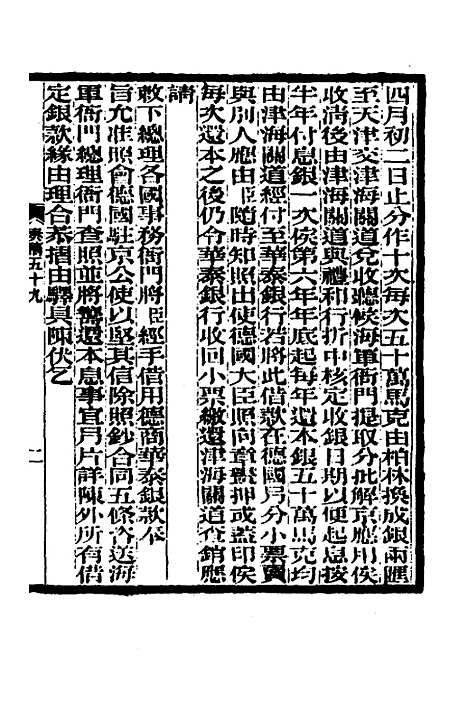 四月初二日止分作十次每次五十萬馬克由柏林換成銀兩匯
至天津交津海關道兌收聽候海軍衙門提取分批解京應用俟
收清後由津海關道與禮和行折中核定收銀日期以便起息按
半年付息銀一次俟第六年年底起每年還本銀五十萬馬克均
由津海關道經付至華泰銀行若將此借款在德國另分小票賣
與別人應由臣隨時知照出使德國大臣照向章繫押或蓋印俟
每次還本之後仍令華泰銀行收回小票繳還津海關道查銷應
請
敕下總理各國事務衙門將臣經手借用德商華泰銀款奏
旨允准照會德國駐京公使以堅其信除照鈔合同五條咨送海
軍衙門總理衙門查照並將籌還本息事宜另片詳陳外所有借
定銀款緣由理合恭摺由驛具陳伏乞
奏稿五十九
二